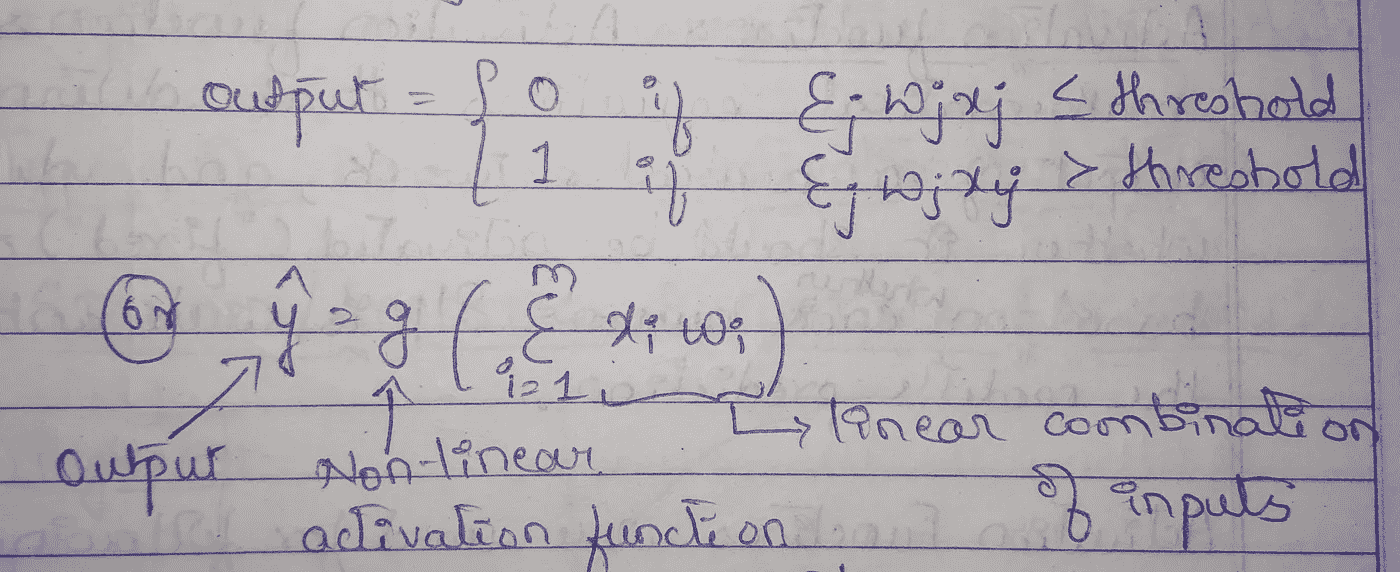 output = { 0 if Σj wjxj ≤ threshold
1 if Σj wjxj > threshold
or ŷ = g ( m Σ i=1 xi wi )
output Non-linear activation function
→ linear combination of inputs